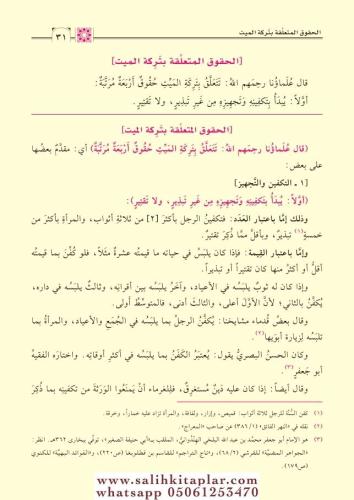 الحقوق المتعلّقة بتركة الميت
٣١
[الحقوق المتعلّقة بتَرِكة الميت]
قال عُلَماؤُنا رحِمَهم اللهُ: تَتَعَلَّقُ بِتَرِكَةِ المَيِّتِ حُقُوقٌ أَرْبَعَةٌ مُرَتَّبَةٌ:
أوَّلاً: يُبدَأُ بِتَكفِينِهِ وَتَجهِيزِهِ مِن غَيرِ تَبذِيرٍ، ولا تَقتِيرٍ.
[الحقوق المتعلّقة بتَرِكة الميت]
(قال عُلَماؤُنا رحِمَهم اللهُ: تَتَعَلَّقُ بِتَرِكَةِ المَيِّتِ حُقُوقٌ أَرْبَعَةٌ مُرَتَّبَةٌ) أي: مقدَّمٌ بعضُها
على بعض:
[١ ـ التكفين والتَّجهيز]
(أوّلاً: يُبدَأُ بتَكفِينِهِ وَتَجهِيزِهِ مِن غَيرِ تَبذِيرٍ، ولا تَقتِيرٍ):
وذلك إمَّا باعتبار العَدَد: فتكفينُ الرجلِ بأكثرَ [٢] من ثلاثةِ أثواب، والمرأةِ بأكثرَ من
خمسةٍ(١) تبذيرٌ، وبأقلَّ ممَّا ذُكِرَ تقتيرٌ.
وإمَّا باعتبار القِيمة: فإذا كان يلبَسُ في حياته ما قيمتُه عشرةٌ مثلاً، فلو كُفِّن بما قيمتُه
أقلُّ أو أكثرُ منها كان تقتيراً أو تبذيراً.
وإذا كان له ثوبٌ يلبَسُه في الأعياد، وآخَرُ يلبَسُه بين أقرانِه، وثالثٌ يلبَسُه في داره،
يُكفَّنُ بالثاني؛ لأنَّ الأوَّلَ أعلى، والثالثَ أدنى، فالمتوسِّطُ أولى.
وقال بعضُ قُدماء مشايخنا: يُكفَّنُ الرجلُ بما يلبَسُه في الجُمَعِ والأعياد، والمرأةُ بما
تلبَسُه لِزيارةِ أبوَيها(٢).
وكان الحسنُ البصريُّ يقول: يُعتبَرُ الكَفَنُ بما يلبَسُه في أكثرِ أوقاتِه. واختارَه الفقيهُ
أبو جَعفرٍ(٣).
وقال أيضاً: إذا كان عليه دَينٌ مُستغرِقٌ، فلِلغُرماء أنْ يَمنَعُوا الوَرَثةَ من تكفينِه بما ذُكِرَ
(١) كفن السُّنَّة للرجل ثلاثة أثواب: قميص، وإزار، ولفافة، والمرأة تزاد عليه خماراً، وخرقة.
(٢) نقله في «النهر الفائق» (١/ ٣٨٦) عن صاحب «المعراج».
(٣) هو الإمام أبو جعفر محمد بن عبد الله البلخي الهِنْدُوَاني، الملقب بـ«أبي حنيفة الصغير»، توفِّي ببخارى ٣٦٢هـ. انظر:
«الجواهر المضيَّة» للقرشي (٢/ ٦٨)، و«تاج التراجم» للقاسم بن قطلوبغا (ص٢٢٠)، و«الفوائد البهيَّة» للكنوي
(ص١٧٩).
www.salihkitaplar.com
whatsapp 05061253470